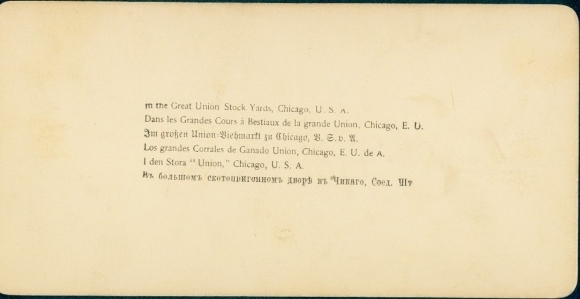 In the Great Union Stock Yards, Chicago, U. S. A.
Dans les Grandes Cours à Bestiaux de la grande Union, Chicago, E. U.
Im großen Union-Viehmarkt zu Chicago, V. S. v. A.
Los grandes Corrales de Ganado Union, Chicago, E. U. de A.
I den Stora "Union," Chicago, U. S. A.
Въ большомъ скотопригонномъ дворѣ въ Чикаго, Соед. Шт